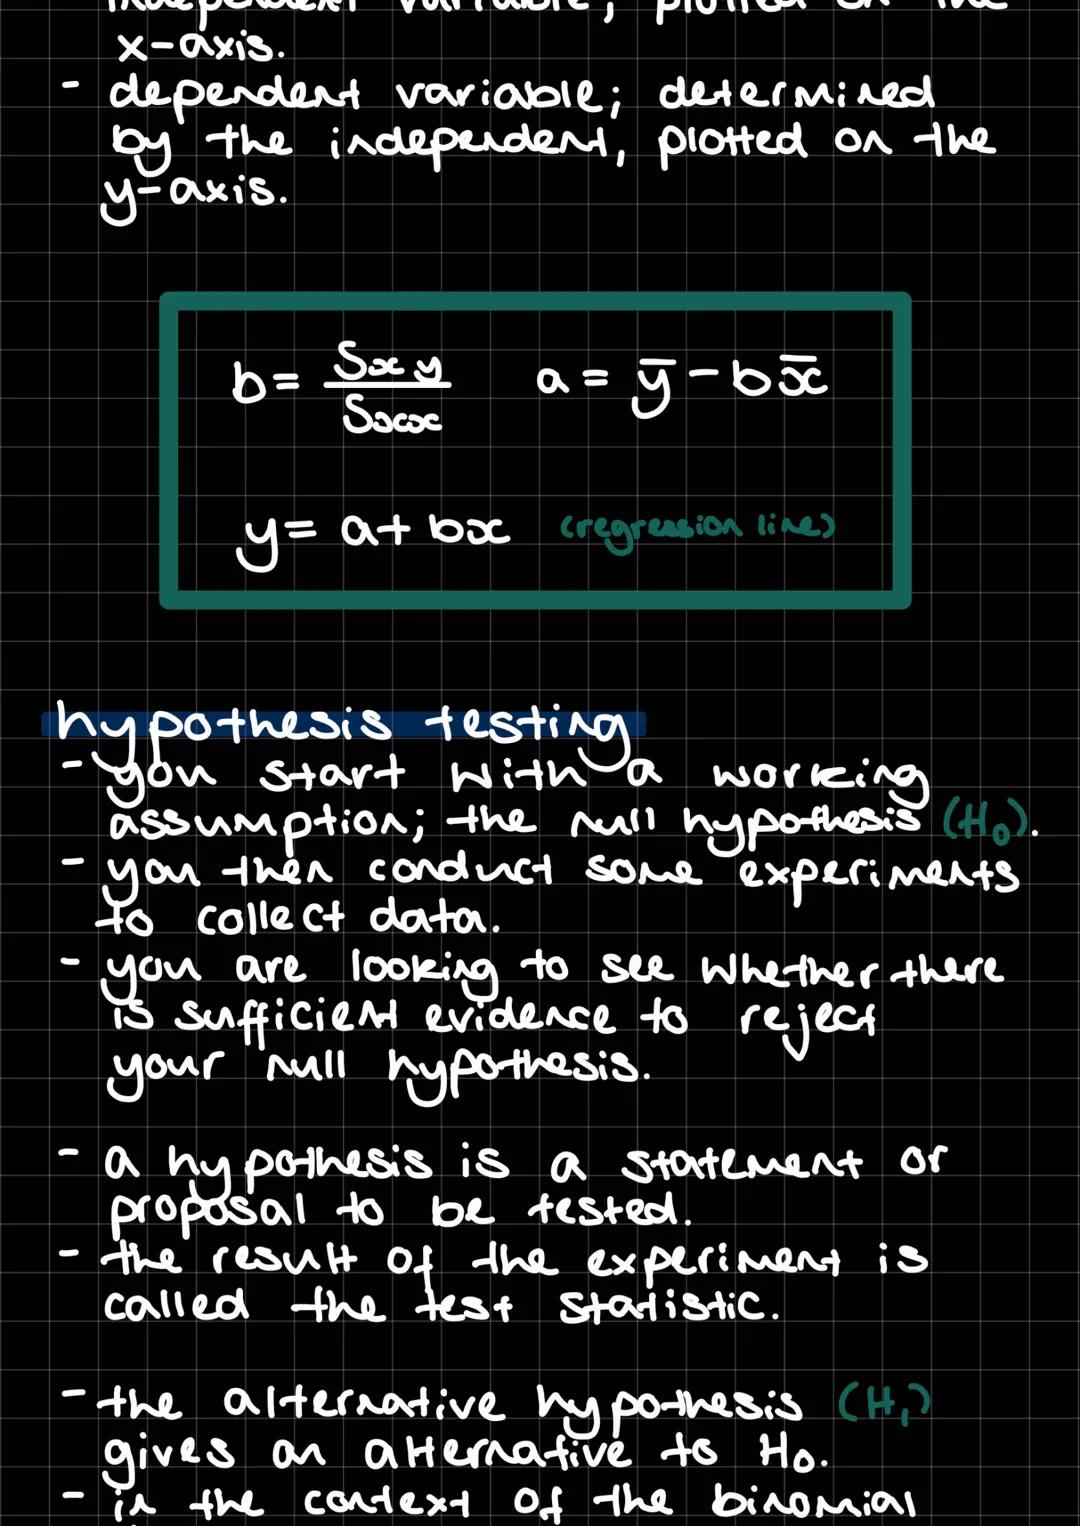 independent variable; plotted on the
x-axis.
- dependent variable; determined
by the independent, plotted on the
y-axis.
b = Sxy / Sxx a = ȳ - bx̄
y = a + bx (regression line)
hypothesis testing
- you start with a working
assumption; the null hypothesis (H₀).
- you then conduct some experiments
to collect data.
- you are looking to see whether there
is sufficient evidence to reject
your null hypothesis.
- a hypothesis is a statement or
proposal to be tested.
- the result of the experiment is
called the test statistic.
- the alternative hypothesis (H₁)
gives an alternative to H₀.
- in the context of the binomial